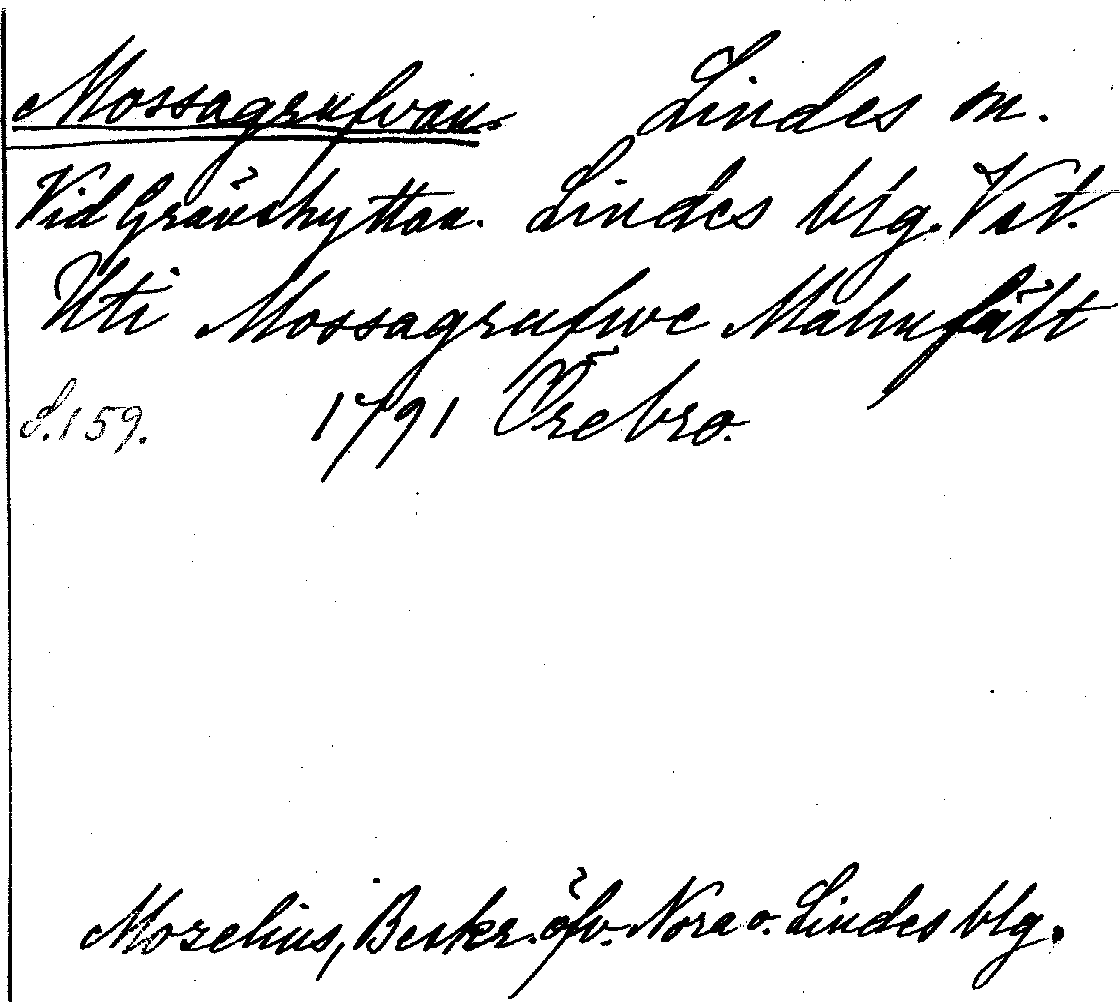 Mossagrufvan. Lindes m.
Vid Gräushyttan. Lindes blg. Vst.
Uti Mossagrufwe Malmfält
S.159. 1791 Örebro.
Mozelius, Beskr. öfv. Nora o. Lindes blg.